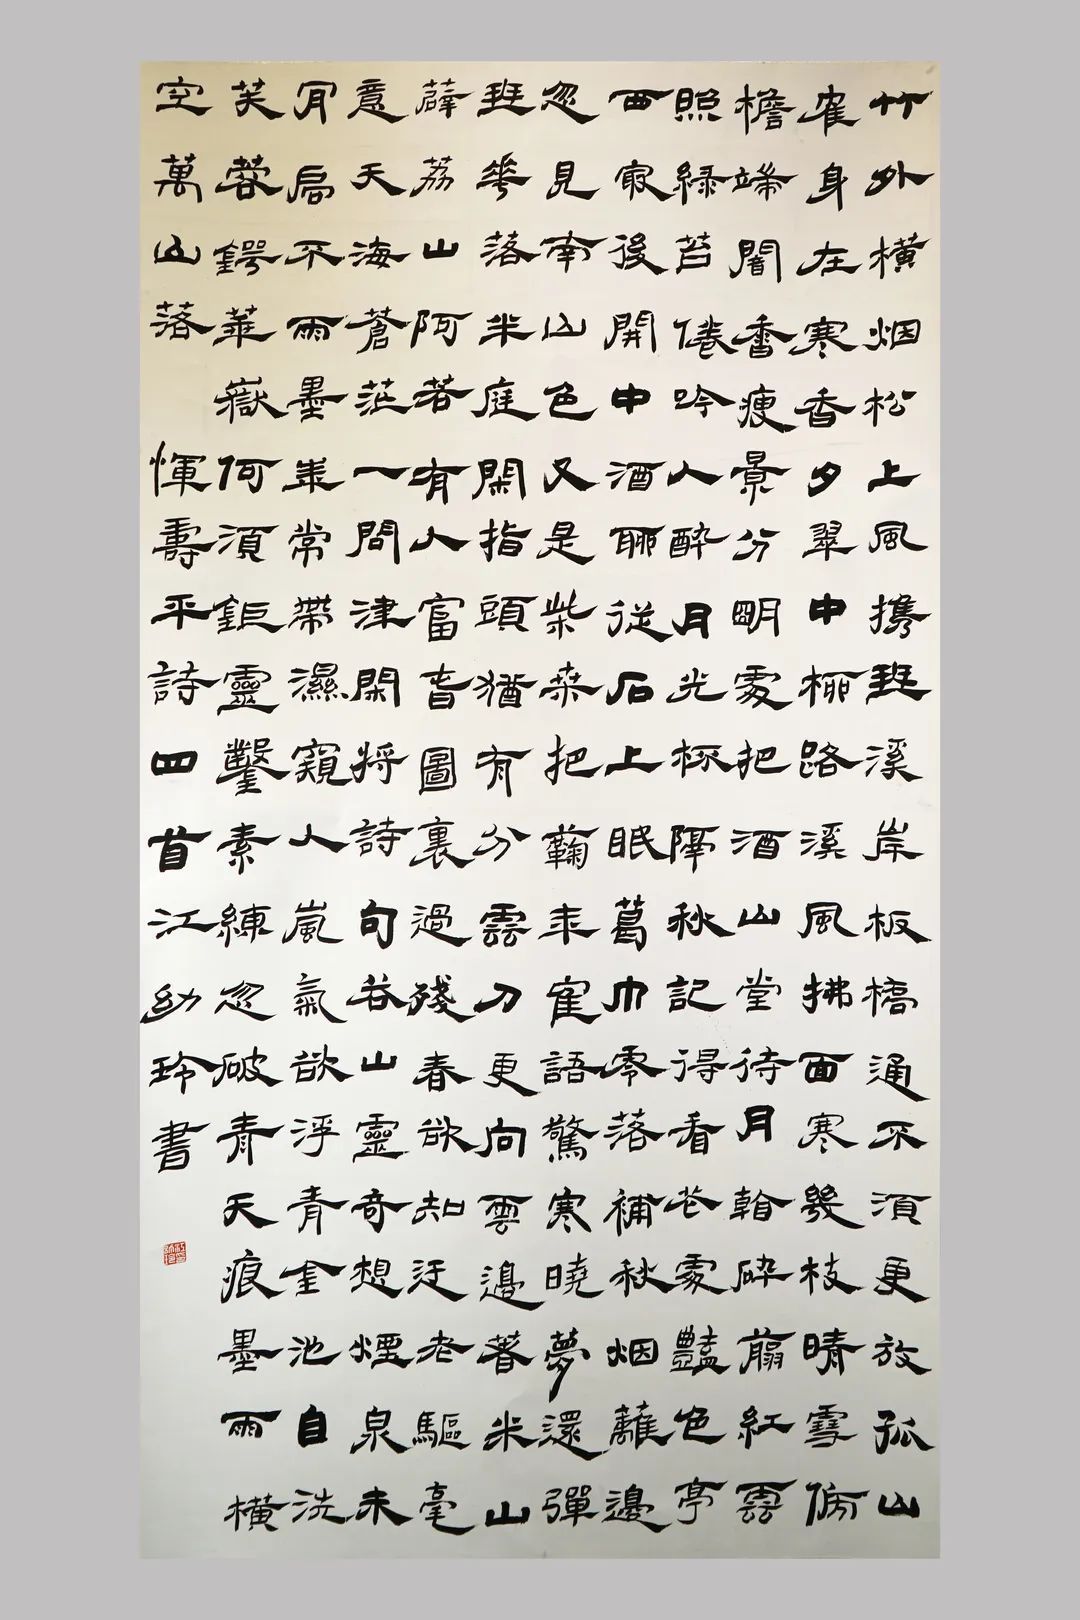 竹外横烟松上風携琴溪岸板橋通不須更放孤山
隺身在寒香夕翠中柳路溪風拂面寒幾枝晴雪傍
檐端闇香瘦景分朙處把酒山堂待月碎翦紅雲
照緑苔倦吟人醉月光杯隔秋記得看花處豔色亭
西最後開中酒聊從石上眠葛巾零落補秋烟蘺邊
忽見南山色又是柴桑把蘜来隺語驚寒曉夢還彈
琴花落半庭閑指頭猶有分雲刀更向雲邊著米山
薜荔山阿若有人富春圖裏過殘春欲知迂老驅毫
意天海蒼茫一問津閑將詩句答山靈奇想煙泉未
肎扃不雨墨崖常帶濕窺人嵐氣欲浮青金池自洗
芙蓉鍔華嶽何須鉅靈鑿素練忽破青天痕墨雨横
空萬山落 惲壽平詩四首江幼玲書